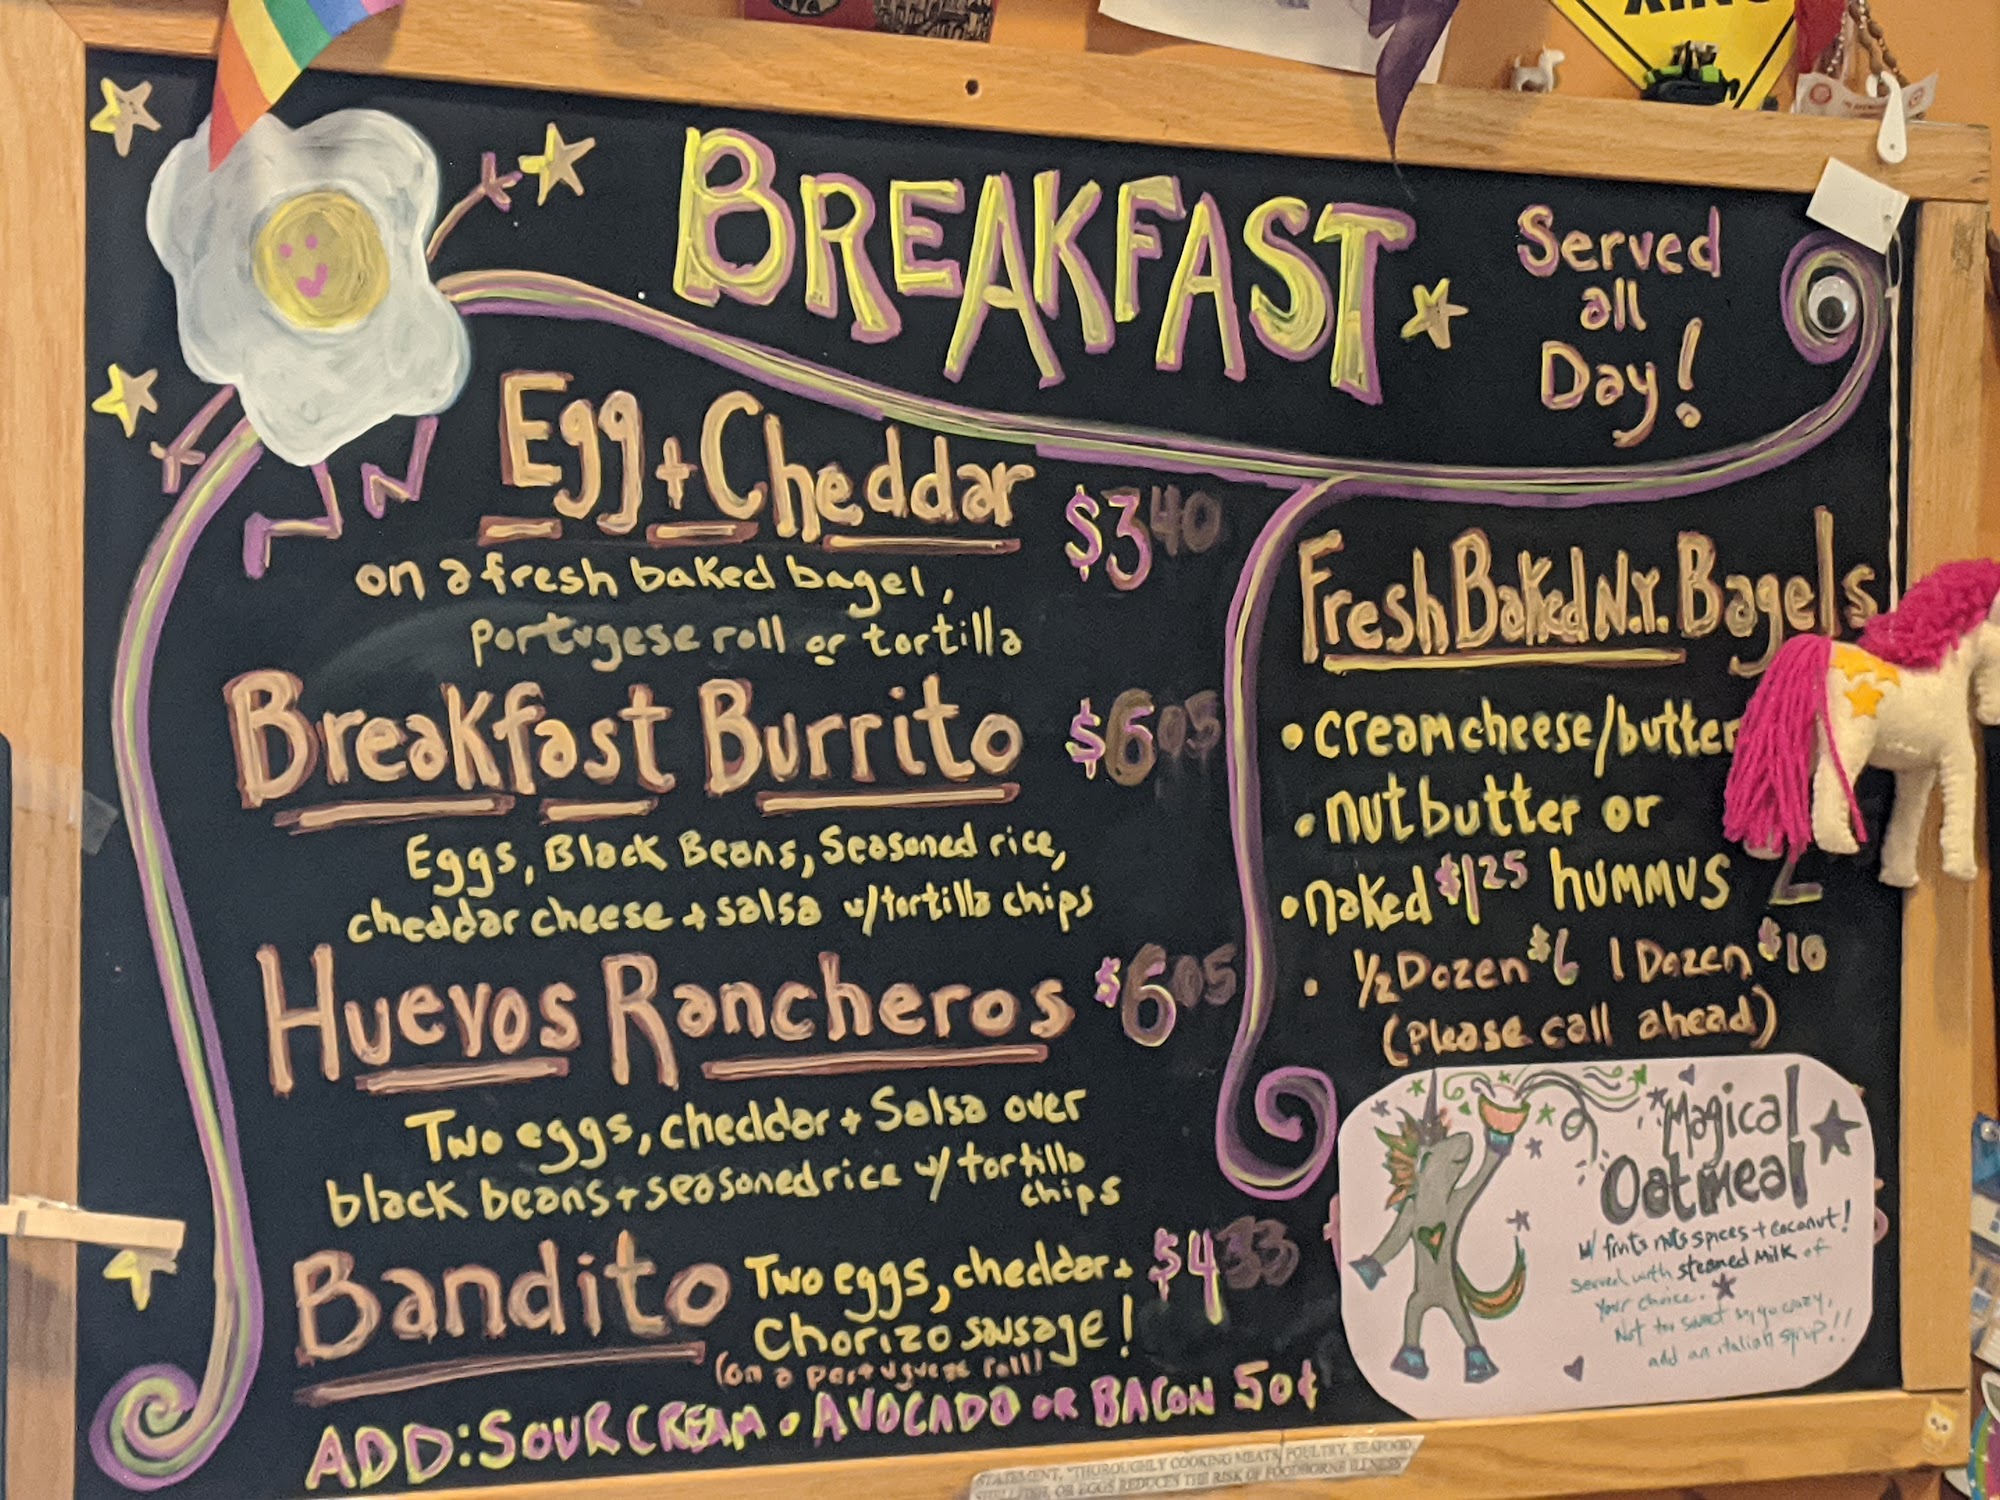 XING
BREAKFAST
Served
all
Day!
Egg + Cheddar $3 40
on a fresh baked bagel,
Portugese roll or tortilla
Breakfast Burrito $6 05
Eggs, Black Beans, Seasoned rice,
cheddar cheese + salsa w/tortilla chips
Huevos Rancheros $6 05
Two eggs, cheddar + Salsa over
black beans + seasoned rice w/ tortilla
chips
Bandito Two eggs, cheddar + $4 33
Chorizo sausage!
(on a portuguese roll!)
ADD: SOUR CREAM • AVOCADO OR BACON 50¢
Fresh Baked N.Y. Bagels
• cream cheese/butter
• nut butter or
• naked $1 25 hummus
• 1/2 Dozen $6 1 Dozen $10
(Please call ahead)
Magical
Oatmeal
w/ fruits nuts spices + coconut!
served with steamed milk of
your choice.
Not too sweet say you crazy,
add an italian syrup!!
STATEMENT, "THOROUGHLY COOKING MEATS, POULTRY, SEAFOOD,
SHELLFISH, OR EGGS REDUCES THE RISK OF FOODBORNE ILLNESS"